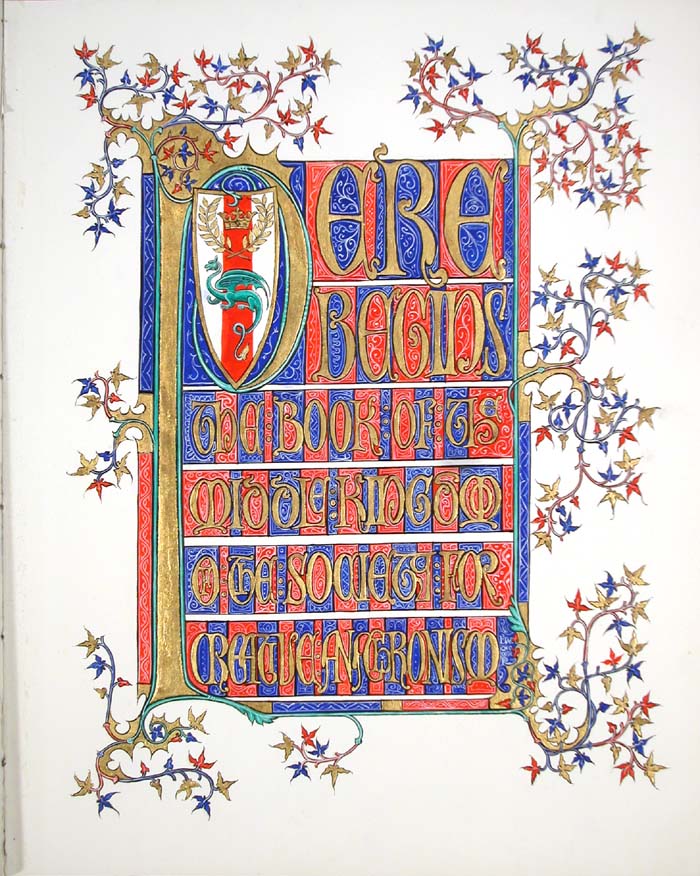 HERE
BEGINS
THE:BOOK:OF:
MIDDLE:KINGDOM
OF:THE:SOCIETY:FOR
CREATIVE ANACHRONISM